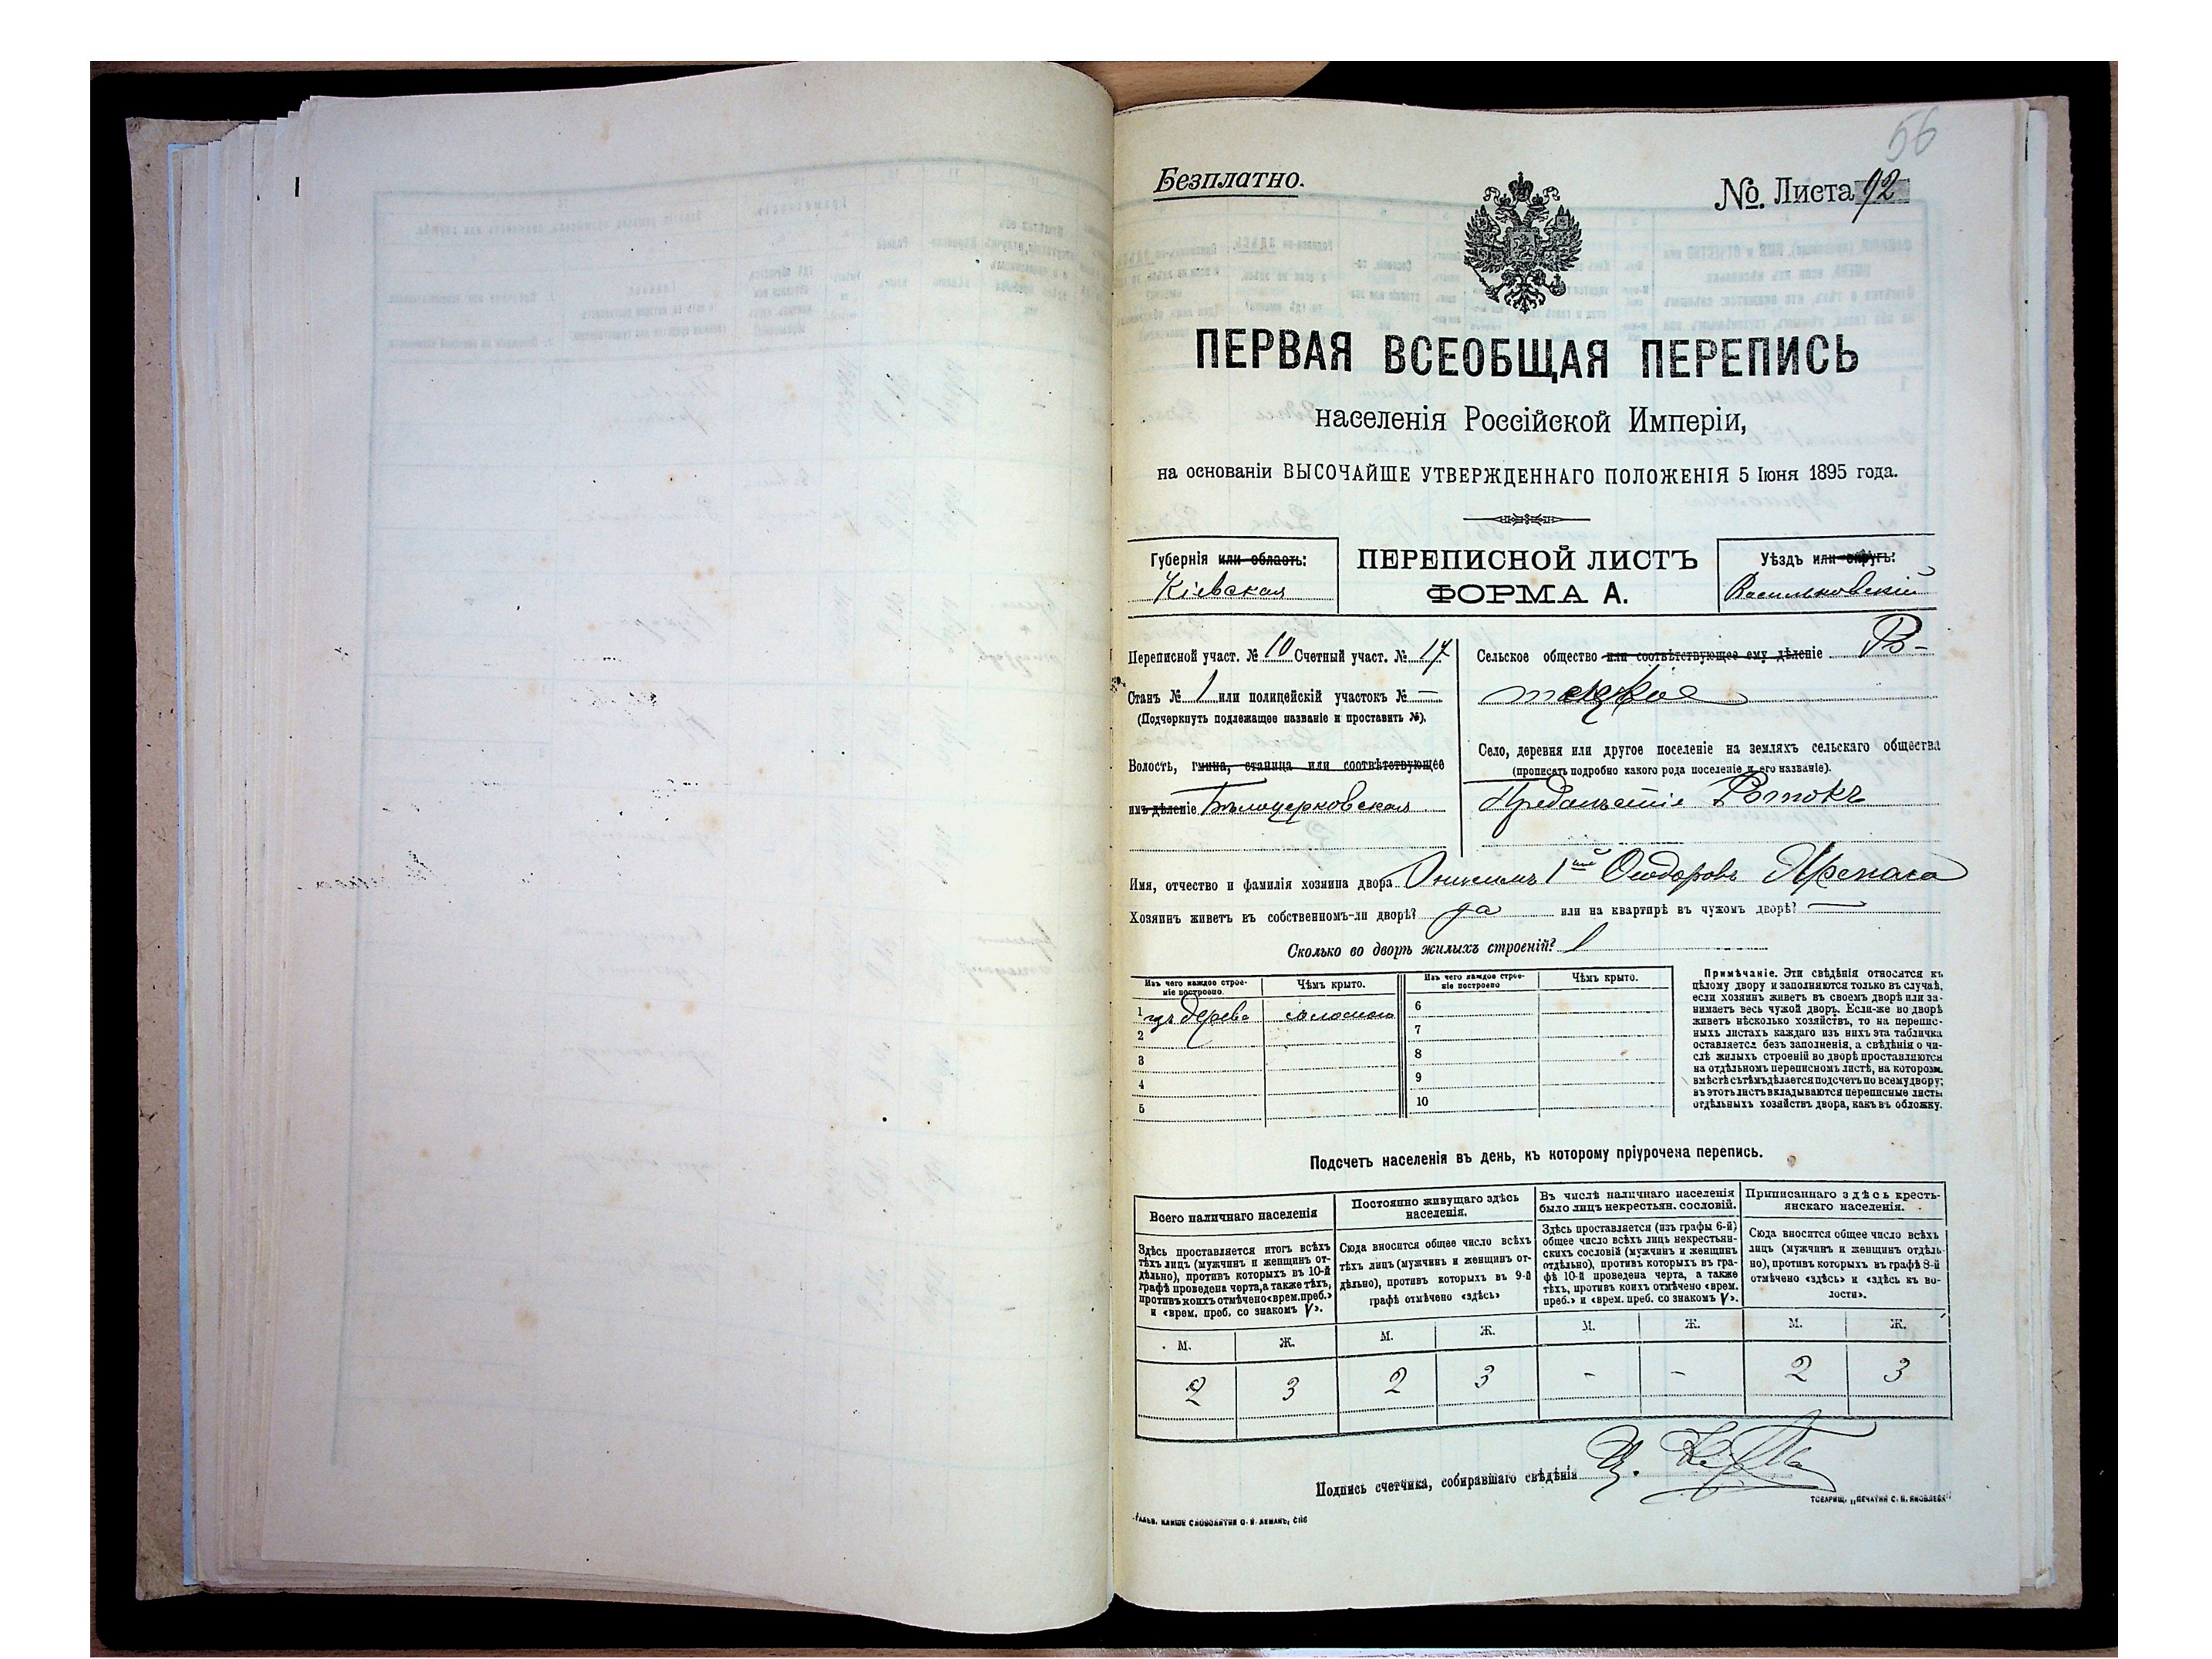 56
Безплатно.
№. Листа 92
ПЕРВАЯ ВСЕОБЩАЯ ПЕРЕПИСЬ
населенія Россійской Имперіи,
на основаніи ВЫСОЧАЙШЕ УТВЕРЖДЕННАГО ПОЛОЖЕНІЯ 5 Іюня 1895 года.
Губернія или область:
Кіевская
ПЕРЕПИСНОЙ ЛИСТЪ
ФОРМА А.
Уѣздъ или округъ:
Васильковскій
Переписной участ. № 10 Счетный участ. № 17
Станъ № 1 или полицейскій участокъ № —
(Подчеркнуть подлежащее названіе и проставить №).
Волость, гмина, станица или соотвѣтствующее
имъ дѣленіе Бѣлоцерковская
Сельское общество или соотвѣтствующее ему дѣленіе
Село, деревня или другое поселеніе на земляхъ сельскаго общества
(прописать подробно какого рода поселеніе и его названіе).
Предмѣстіе Ротокъ
Имя, отчество и фамилія хозяина двора Онисимъ 1ый Ѳеодоровъ
Хозяинъ живетъ въ собственномъ-ли дворѣ? да или на квартирѣ въ чужомъ дворѣ? —
Сколько во дворѣ жилыхъ строеній? 1
Изъ чего каждое строеніе построено.
Чѣмъ крыто.
Изъ чего каждое строеніе построено
Чѣмъ крыто.
1 изъ дерева соломою
2
3
4
5
6
7
8
9
10
Примѣчаніе. Эти свѣдѣнія относятся къ
цѣлому двору и заполняются только въ случаѣ,
если хозяинъ живетъ въ своемъ дворѣ или за-
нимаетъ весь чужой дворъ. Если-же во дворѣ
живетъ нѣсколько хозяйствъ, то на перепис-
ныхъ листахъ каждаго изъ нихъ эта табличка
оставляется безъ заполненія, а свѣдѣнія о чи-
слѣ жилыхъ строеній во дворѣ проставляются
на отдѣльномъ переписномъ листѣ, на которомъ
вмѣстѣ съ тѣмъ дѣлается подсчетъ по всему двору;
въ этотъ листъ вкладываются переписные листы
отдѣльныхъ хозяйствъ двора, какъ въ обложку.
Подсчетъ населенія въ день, къ которому пріурочена перепись.
Всего наличнаго населенія
Здѣсь проставляется итогъ всѣхъ
тѣхъ лицъ (мужчинъ и женщинъ от-
дѣльно), противъ которыхъ въ 10-й
графѣ проведена черта, а также тѣхъ,
противъ коихъ отмѣчено «врем. преб.»
и «врем. преб. со знакомъ V».
Постоянно живущаго здѣсь
населенія.
Сюда вносится общее число всѣхъ
тѣхъ лицъ (мужчинъ и женщинъ от-
дѣльно), противъ которыхъ въ 9-й
графѣ отмѣчено «здѣсь»
Въ числѣ наличнаго населенія
было лицъ некрестьян. сословій.
Здѣсь проставляется (изъ графы 6-й)
общее число всѣхъ лицъ некрестьян-
скихъ сословій (мужчинъ и женщинъ
отдѣльно), противъ которыхъ въ гра-
фѣ 10-й проведена черта, а также
тѣхъ, противъ коихъ отмѣчено «врем.
преб.» и «врем. преб. со знакомъ V».
Приписаннаго здѣсь кресть-
янскаго населенія.
Сюда вносится общее число всѣхъ
лицъ (мужчинъ и женщинъ отдѣль-
но), противъ которыхъ въ графѣ 8-й
отмѣчено «здѣсь» и «здѣсь въ во-
лости».
М. Ж. М. Ж. М. Ж. М. Ж.
2 3 2 3 - - 2 3
Подпись счетчика, собиравшаго свѣдѣнія
ТОВАРИЩ. „ПЕЧАТНЯ С. П. ЯКОВЛЕВА"